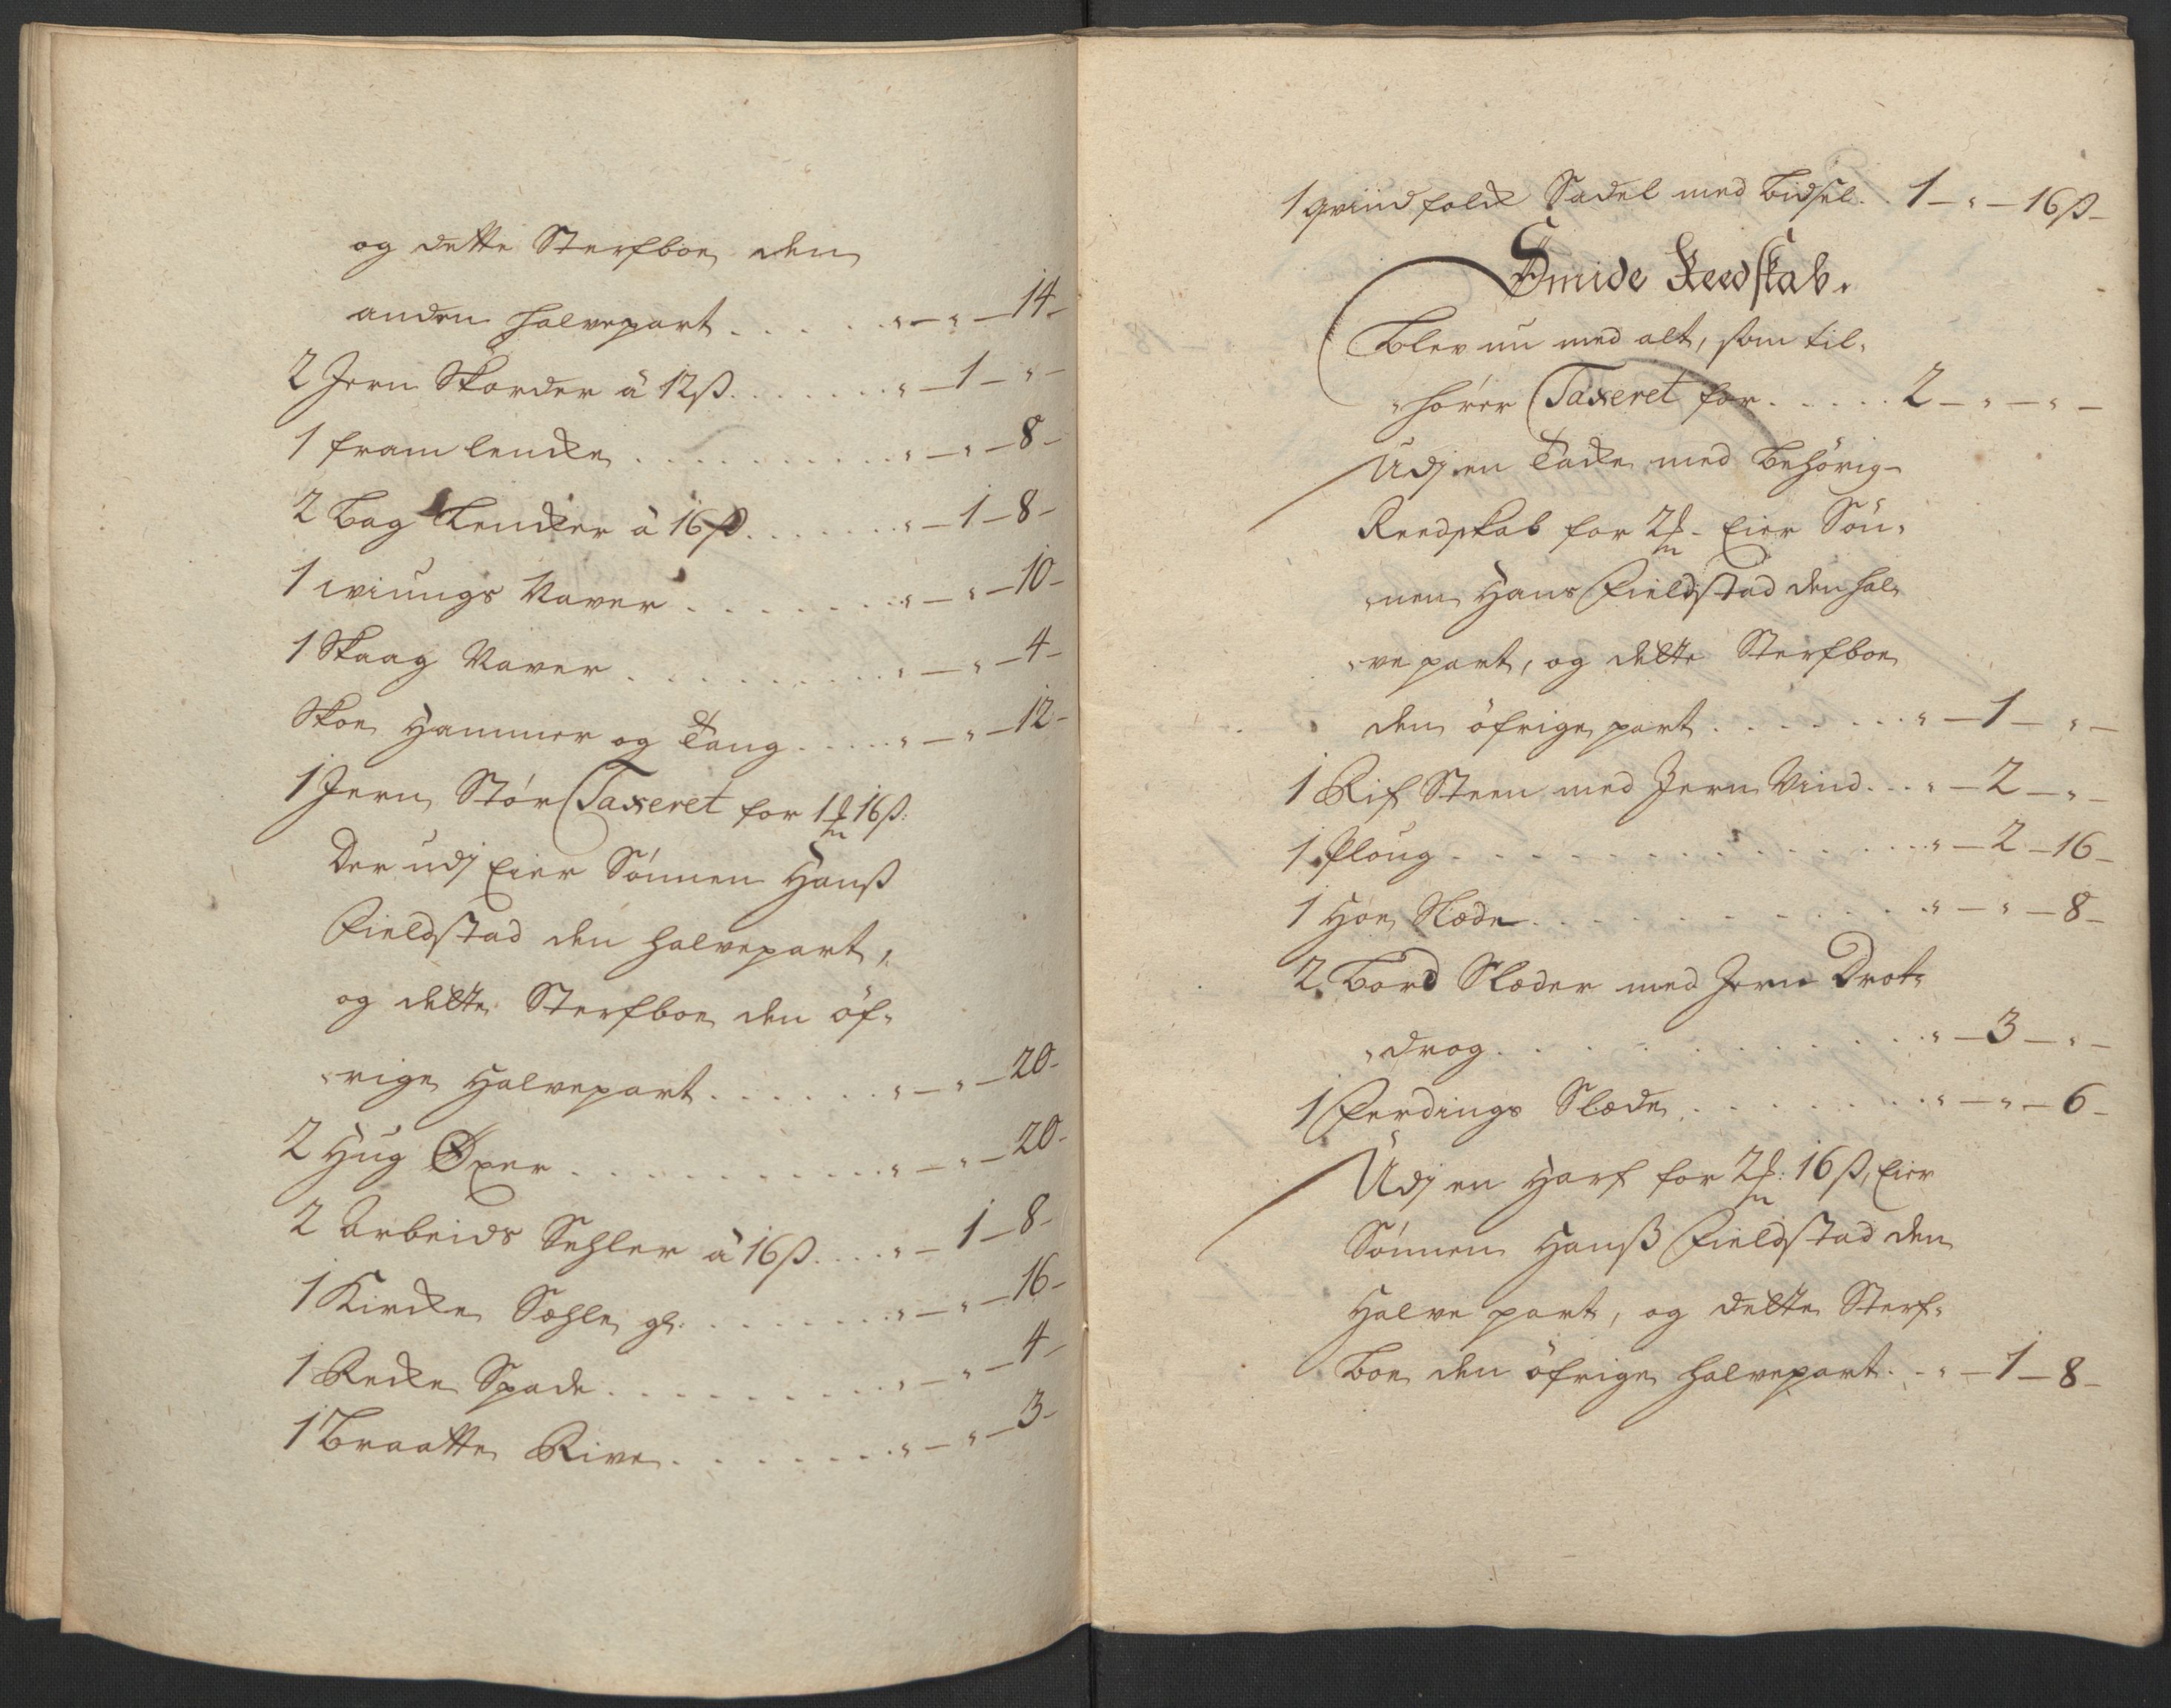 og dette Sterfboe den
anden halvepart . . . . . . " — " — 14 —
2 Jern Skorder à 12ß. . . . . . . " — 1 — " —
1 fram lencke . . . . . . . . . . " — " — 8 —
2 Bag Lencker à 16ß. . . . . . " — 1 — 8 —
1 Navar . . . . . . . . " — " — 10 —
1 Skaag Naver . . . . . . . . . . " — " — 4 —
Skoe Hammer og Tang . . . . . " — " — 12 —
1 Jern Stör Taxeret for 1 16ß:
Der udj Eier Sönnen Hanß
Fieldstad den halvepart,
og dette Sterfboe den öf-
-rige Halvepart . . . . . . " — " — 20 —
2 Hug Öxer . . . . . . . . . . . . " — " — 20 —
2 Arbeids Sehler à 16ß. . . . " — 1 — 8 —
1 Kircke Sæhle gl: . . . . . . . . " — " — 16 —
1 Recke Spade . . . . . . . . . . " — " — 4 —
1 Braatte Rive . . . . . . . . " — " — 3 —
1 qvindfolck Sadel med Bidsel. 1 — " — 16ß —
Smide Reedskab.
Blev nu med alt, som til-
-hörer Taxeret for . . . . . 2 — " — " —
Udj en Tacke med Behörig
Reedskab for 2 - Eier Sön-
-nen Hans Fieldstad den hal-
-ve part, og dette Sterfboe
den öfrige part . . . . . . . . " — 1 — " —
1 Rif Steen med Jern Vind. . . " — 2 — " —
1 Ploug . . . . . . . . . . . . . . . " — 2 — 16 —
1 Höe Slæde . . . . . . . . . . . . " — " — 8 —
2 Bord Slæder med Jern Drot-
-drog . . . . . . . . . . . . . " — 3 — " —
1 Ferdings Slæde . . . . . . . . " — " — 6 —
Udj en Harf for 2 : 16ß, Eier
Sönnen Hanß Fieldstad den
Halve part, og dette Sterf-
Boe den öfrige halvepart . . " — 1 — 8 —